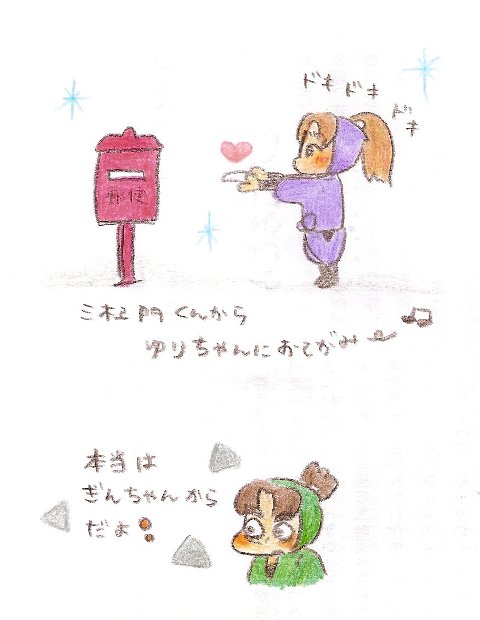 ドキ
ドキ
ドキ
郵便
三木ヱ門くんから
ゆりちゃんにおてがみ
本当は
ぎんちゃんから
だよ!